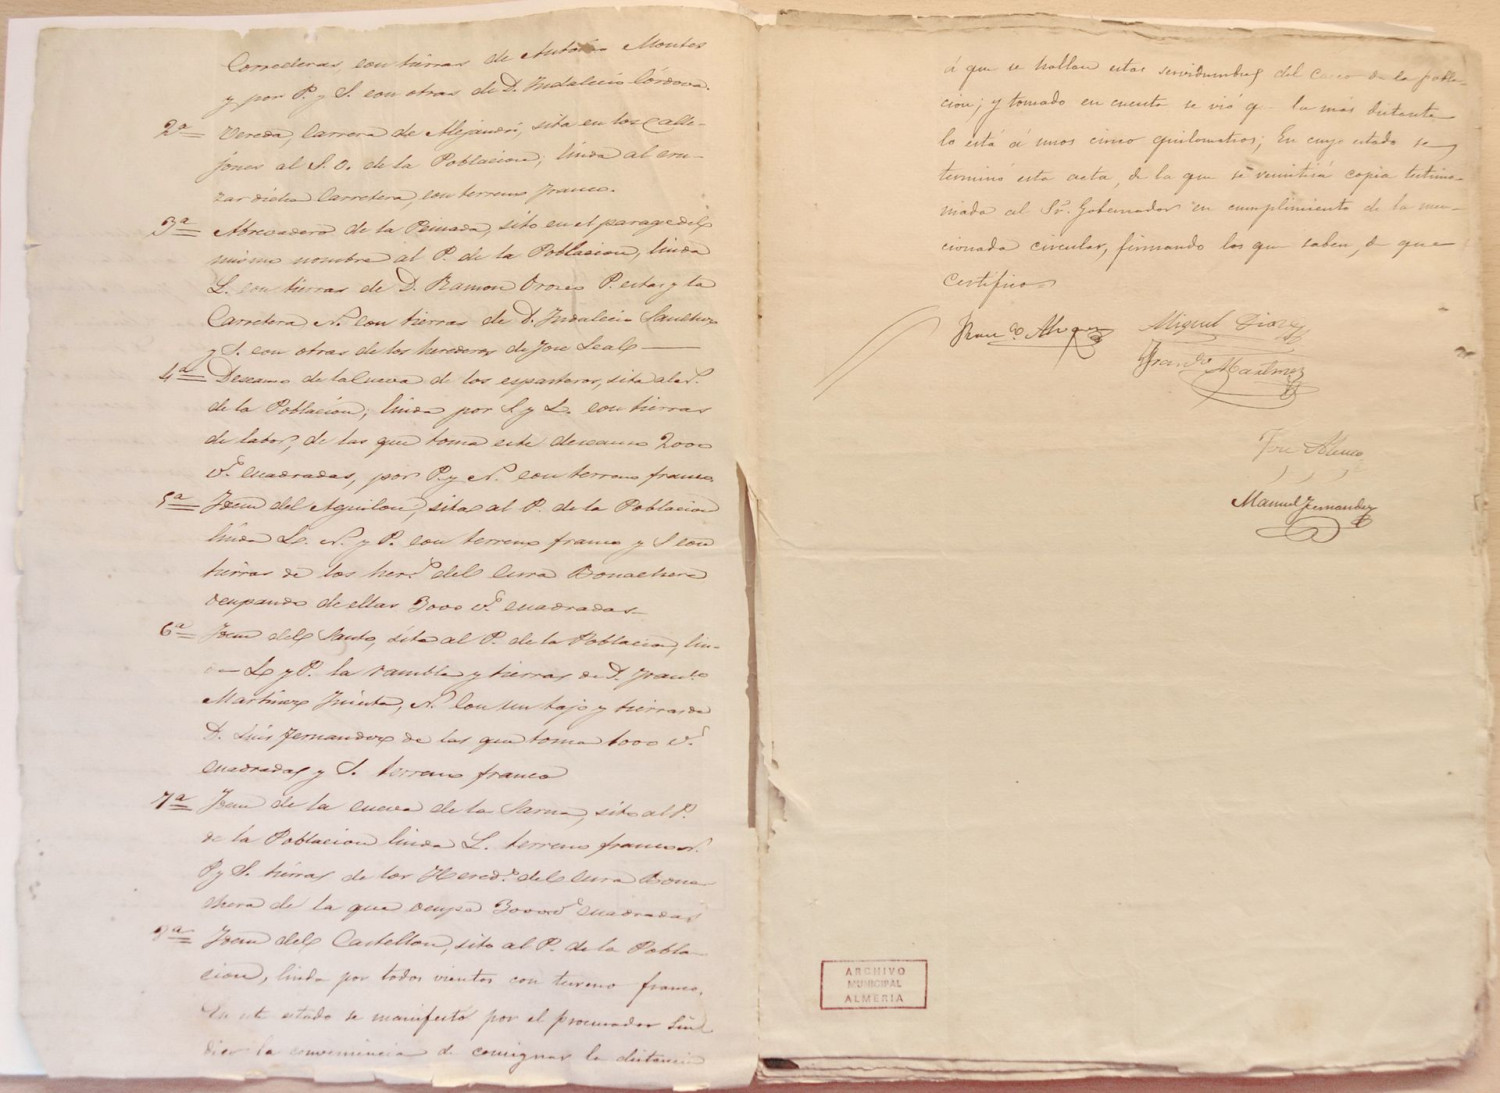 Correderas, con tierras de Antonio Montes
y por P. y S. con otras de D. Indalecio Córdova.
2ª Vereda, Carrera de Alejandri, sita en los Calle-
jones al S. O. de la Poblacion, linda al cru-
zar dicha Carretera, con terreno franco.
3ª Abrevadero de la Binada, sito en el parage del
mismo nombre al P. de la Poblacion, linda
L. con tierras de D. Ramon Orozco P. estas y la
Carretera N. con tierras de D. Indalecio Sanchez
y S. con otras de los herederos de José Leal
4ª Descanso de la Cueva de los esparteros, sita al N.
de la Poblacion, linda por S. y L. con tierras
de labor, de las que toma este descanso 2000
vs. cuadradas, por P. y N. con terreno franco
5ª Idem del Aguilon, sita al P. de la Poblacion
linda L. N. y P. con terreno franco y S con
tierras de los hers. del cura Bonachera
ocupando de ellas 3000 vs. cuadradas
6ª Idem del Santo, sita al P. de la Poblacion, lin-
da L y P. la rambla y tierras de D. Franco.
Martinez, N. con un bajo y tierras de
D. Luis Fernandez de las que toma 1000 vs.
cuadradas y S. terreno franco
7ª Idem de la cueva de la Sarna, sito al P.
de la Poblacion linda L. terreno franco N.
P y S. tierras de los Hereds. del cura Bona-
chera de la que ocupa 3000 vs. cuadradas
8ª Idem del Castellon, sito al P. de la Pobla-
cion, linda por todos vientos con terreno franco.
En este estado se manifestó por el procurador Sín
dico la conveniencia de consignar la distancia
á que se hallan estas servidumbres del casco de la pobla-
cion; y tomado en cuenta se vió q. la más distante
lo está á unos cinco quilometros; En cuyo estado se
terminó esta acta, de la que se remitirá copia testimo-
niada al Sr. Gobernador en cumplimiento de la men-
cionada circular, firmando los que saben, de que
Certifico
Miguel Diaz
Martinez
Manuel Fernandez
ARCHIVO
MUNICIPAL
ALMERIA